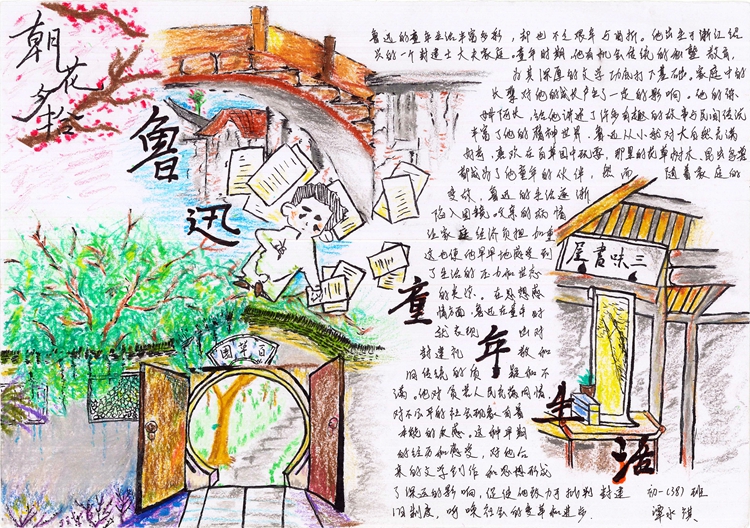 朝花夕拾
鲁迅童年生活
鲁迅的童年生活丰富多彩，却也不乏艰辛与曲折。他出生于浙江绍
兴的一个封建士大夫家庭。童年时期，他有机会传统的私塾教育，
为其深厚的文学功底打下基础。家庭中的
长辈对他的成长产生了一定的影响。他的保
姆阿长，给他讲述了许多有趣的故事与民间传说
丰富了他的精神世界。鲁迅从小就对大自然充满
好奇，喜欢在百草园中玩耍，那里的花草树木、昆虫鸟兽
都成为了他童年的伙伴，然而 随着家庭的
变故，鲁迅的生活逐渐
陷入困境，父亲的病情
让家庭经济负担加重
这也使他早早地感受到
了生活的压力和世态
的炎凉。在思想感
情方面，鲁迅在童年时
就表现 出对
封建礼 教和
旧传统的质 疑和不
满。他对贫苦人民充满同情
对不公平的社会现象有着
本能的反感。这种早期
的经历和感受，对他后
来的文学创作和思想形成
了深远的影响，促使他致力于批判封建
旧制度，呼唤社会的变革和进步。
三味書屋
百草園
初一(38)班